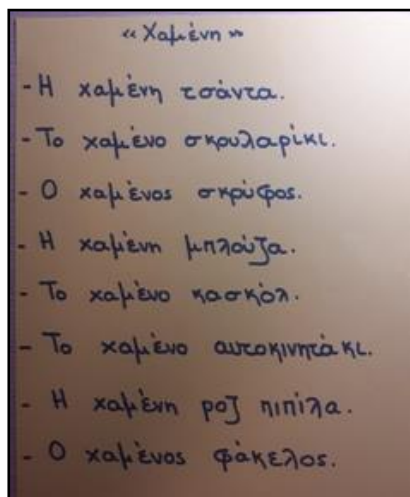 «Χαμένη»
- Η χαμένη τσάντα.
- Το χαμένο σκουλαρίκι.
- Ο χαμένος σκρύφος.
- Η χαμένη μπλούζα.
- Το χαμένο κασκόλ.
- Το χαμένο αυτοκινητάκι.
- Η χαμένη ροζ πιπίλα.
- Ο χαμένος φάκελος.